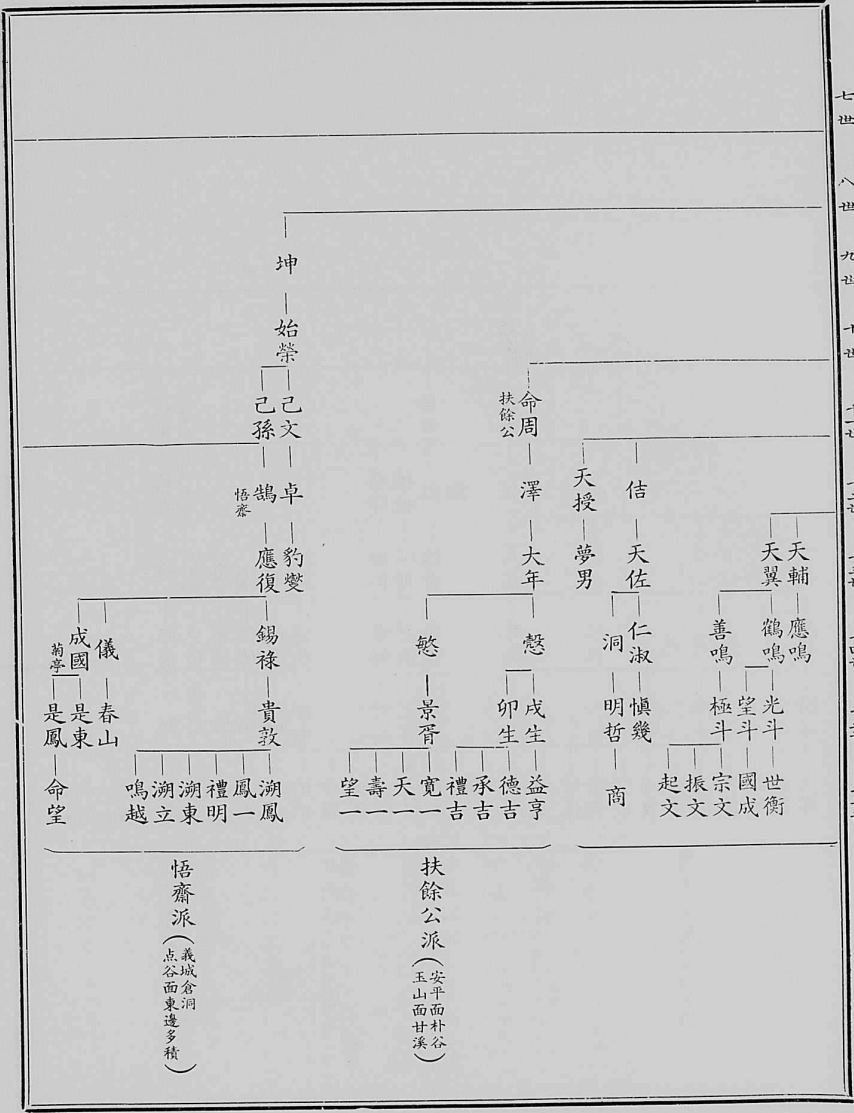 七世
八世
九世
十世
天輔
應鳴
天翼
鶴鳴
光斗
世衡
望斗
國成
善鳴
極斗
宗文
振文
起文
佶
天佐
仁淑
愼幾
洞
明哲
商
天授
夢男
命周
扶餘公
澤
大年
慤
戌生
益亨
卯生
德吉
承吉
禮吉
慜
景胥
寬一
天一
壽一
望一
扶餘公派
(安平面朴谷
玉山面甘溪)
坤
始榮
己文
卓
豹變
己孫
鵠
悟齋
應復
錫祿
貴敦
溯鳳
鳳一
禮明
溯東
溯立
鳴越
儀
春山
成國
菊亭
是東
是鳳
命望
悟齋派
(義城倉洞
点谷面東邊多積)